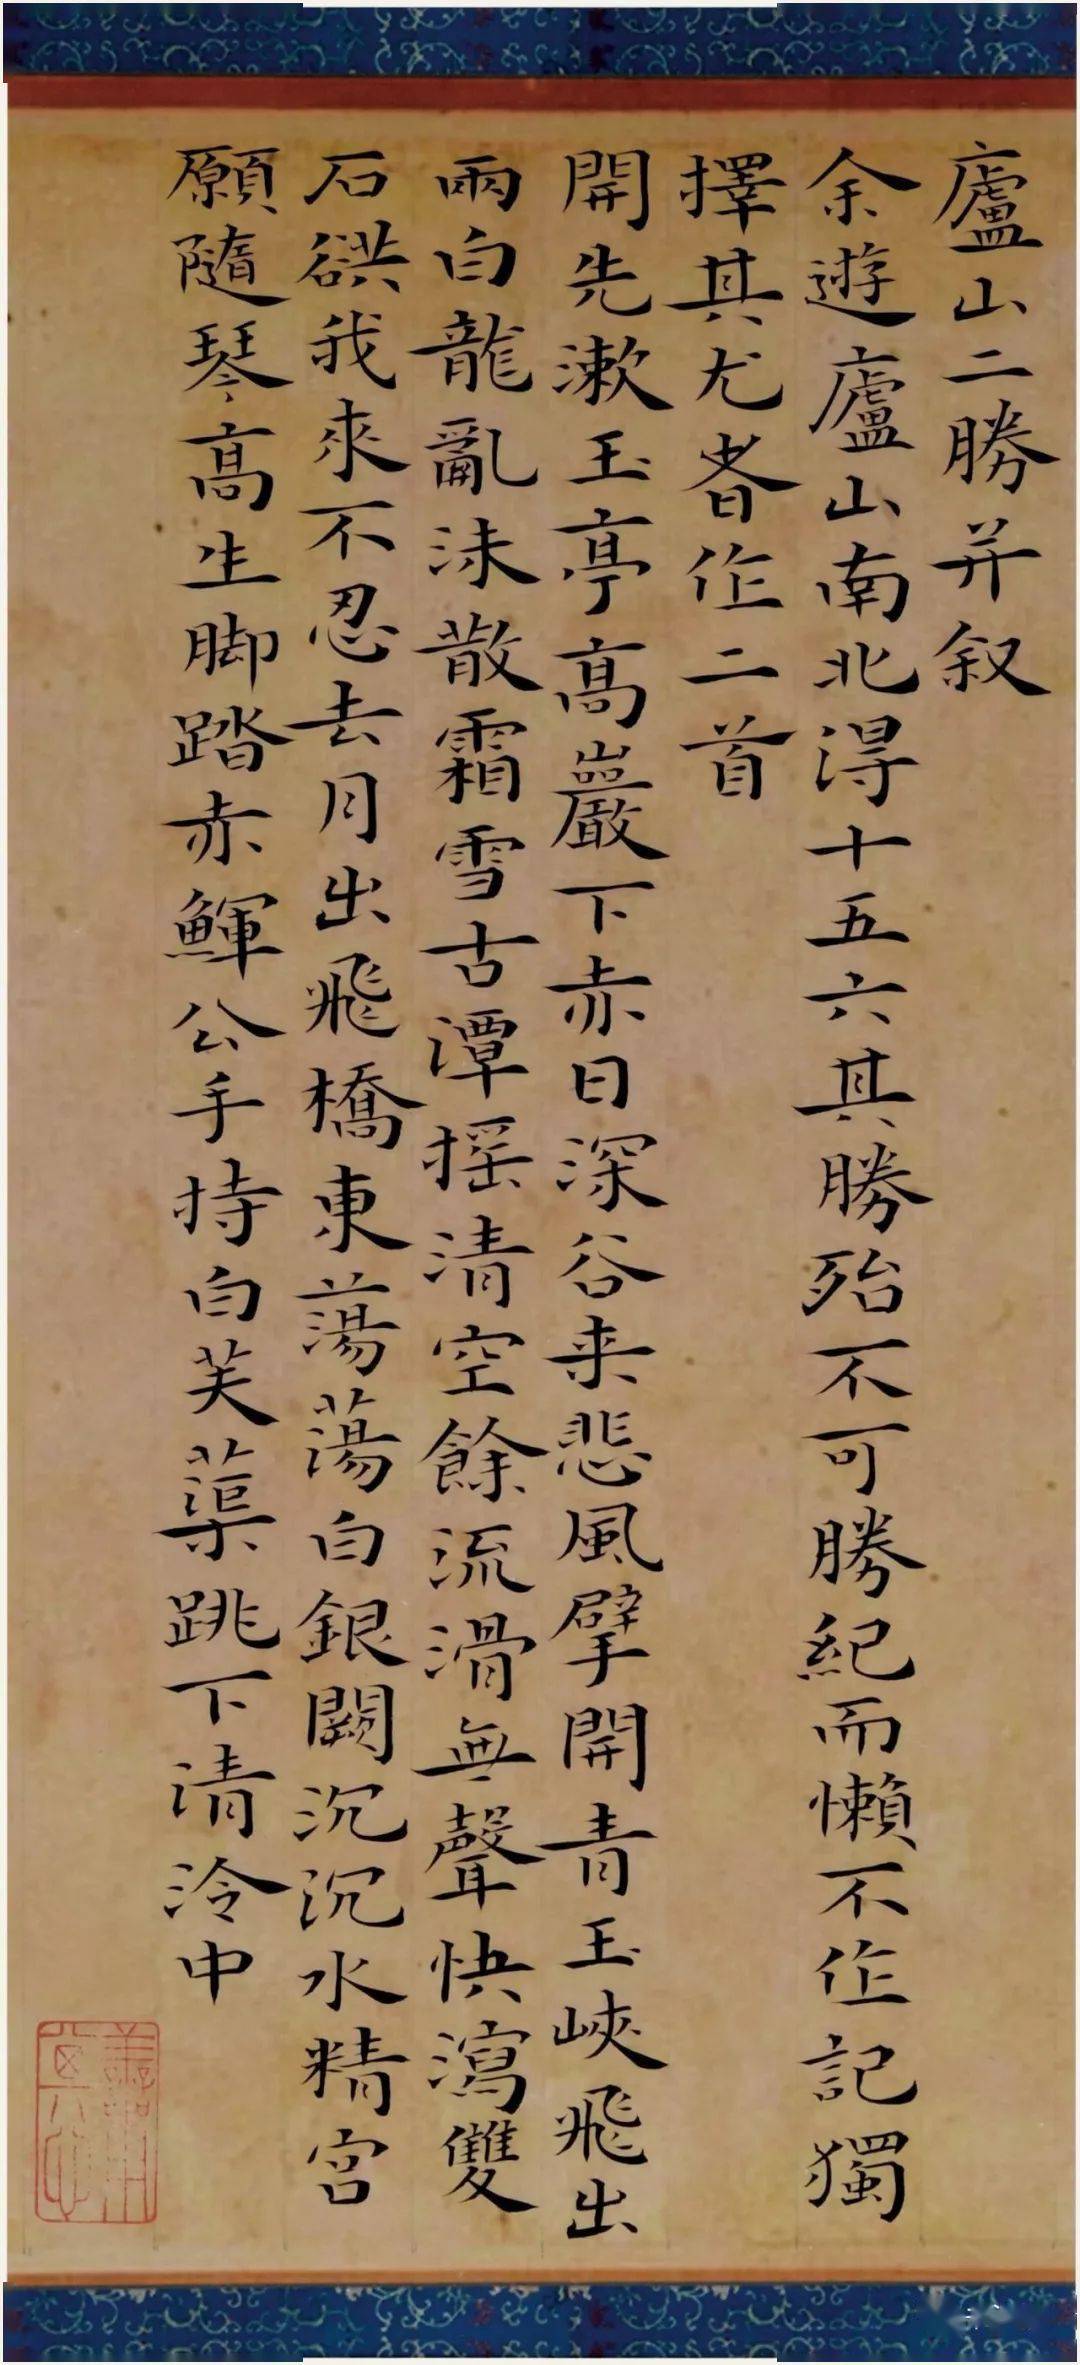 廬山二勝并叙
余遊廬山南北得十五六其勝殆不可勝紀而懶不作記獨
擇其尤者作二首
開先漱玉亭高巖下赤日深谷来悲風擘開青玉峽飛出
兩白龍亂沫散霜雪古潭摇清空餘流滑無聲快瀉雙
石谼我來不忍去月出飛橋東蕩蕩白銀闕沉沉水精宮
願隨琴高生脚踏赤鯶公手持白芙蕖跳下清泠中